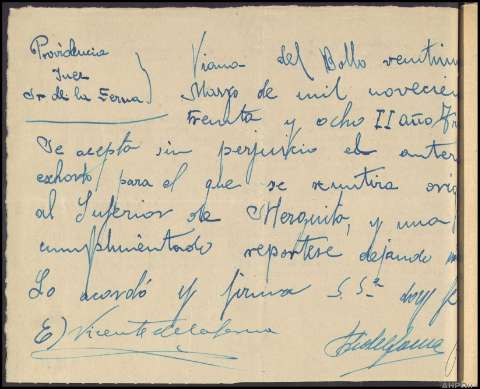 Providencia
Juez
Sr de la Serna
Viana del Bollo
Marzo de mil
Treinta y ocho II año
Se acepta sin perjuicio el
exhorto, para el que se remitira
al Inferior de Mezquita, y una
cumplimentado reportese dejando
Lo acordó y firma S. Sª doy
E) Vicente de la Serna